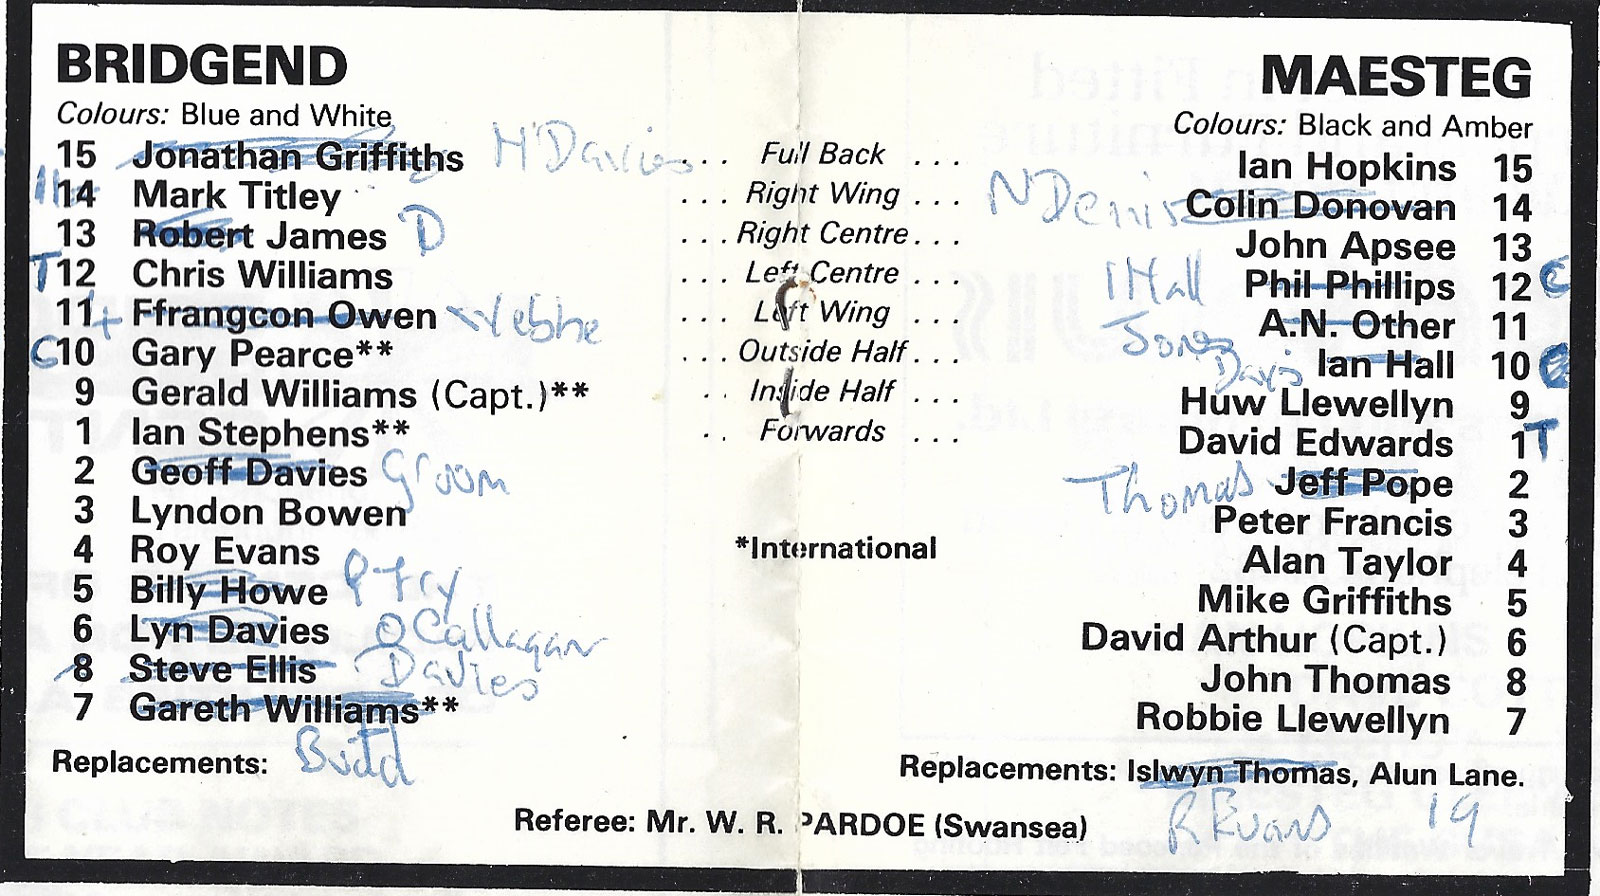 BRIDGEND
Colours: Blue and White
15 Jonathan Griffiths H Davies . .
14 Mark Titley
13 Robert James D
T 12 Chris Williams
11 + Ffrangcon Owen Webbe
C 10 Gary Pearce**
9 Gerald Williams (Capt.)**
1 Ian Stephens**
2 Geoff Davies Groom
3 Lyndon Bowen
4 Roy Evans
5 Billy Howe P Fry
6 Lyn Davies O Callagan
8 Steve Ellis Davies
7 Gareth Williams**
Budd
Replacements:
Full Back . . .
. . . Right Wing . . .
. . . Right Centre . . .
. . . Left Centre . . .
. . . Left Wing . . .
. . . Outside Half . . .
. . Inside Half . . .
. . Forwards . . .
*International
MAESTEG
Colours: Black and Amber
Ian Hopkins 15
N Dennis Colin Donovan 14
John Apsee 13
I Hall Phil Phillips 12 C
Jones A.N. Other 11
Davis Ian Hall 10
Huw Llewellyn 9
David Edwards 1 T
Thomas Jeff Pope 2
Peter Francis 3
Alan Taylor 4
Mike Griffiths 5
David Arthur (Capt.) 6
John Thomas 8
Robbie Llewellyn 7
Replacements: Islwyn Thomas, Alun Lane.
R Evans 19
Referee: Mr. W. R. PARDOE (Swansea)